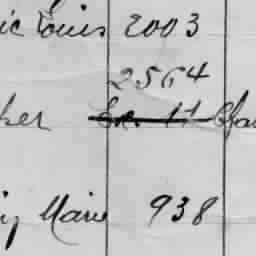 ic Louis 2003
2564
ker
y Marie 938